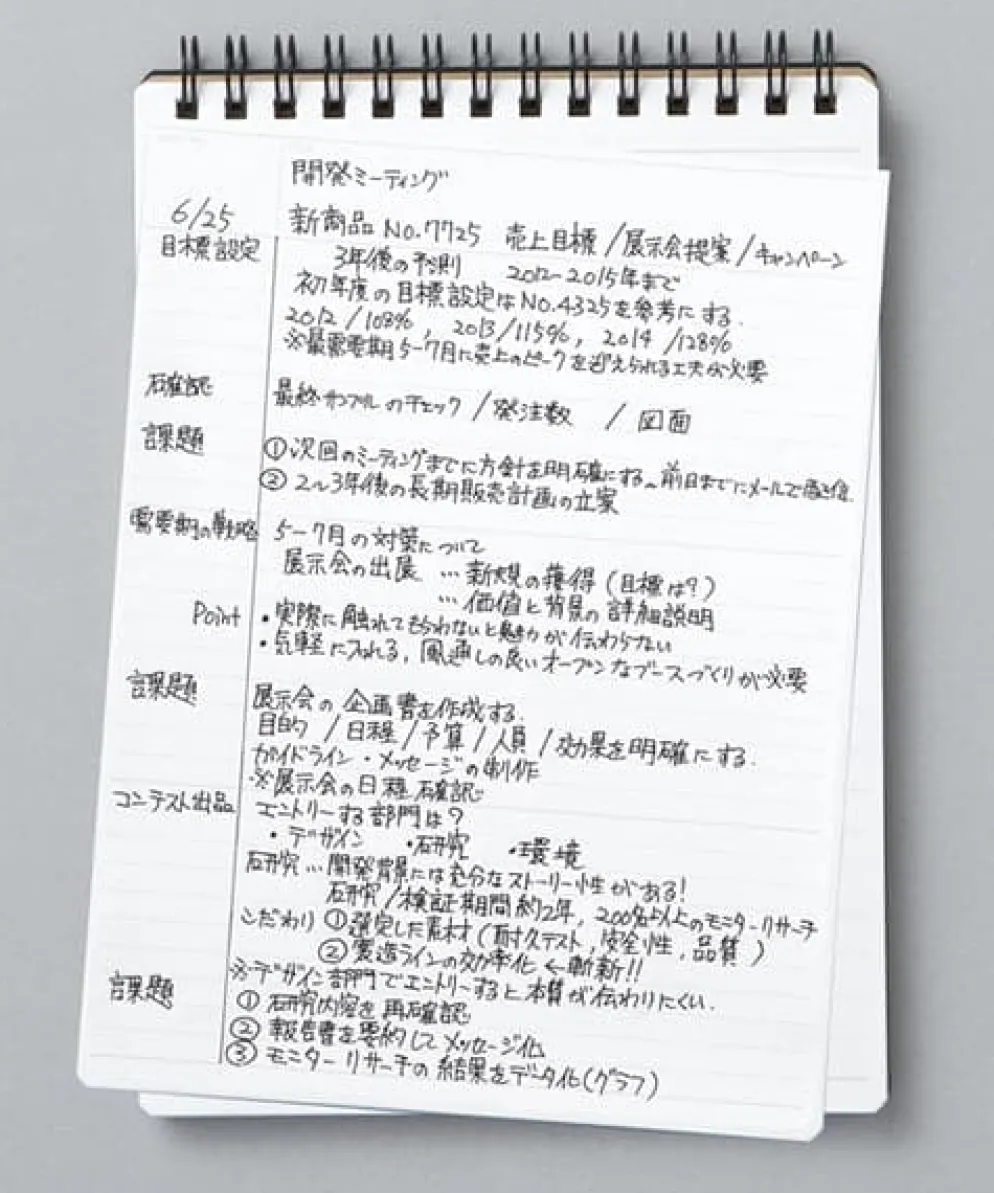 開発ミーティング
6/25 新商品 No.7725 売上目標/展示会提案/キャンペーン
目標設定 3年後の予測 2012-2015年まで
初年度の目標設定はNo.4325を参考にする.
2012/108%, 2013/115%, 2014/128%
※最需要期5-7月に売上のピークを迎えられる工夫が必要
確認 最終サンプルのチェック/発注数 / 図面
課題 ①次回のミーティングまでに方針を明確にする〜前日までにメールで送信
② 2〜3年後の長期販売計画の立案
需要期の戦略 5-7月の対策について
展示会の出展 …新規の獲得(目標は?)
…価値と背景の詳細説明
Point ・実際に触れてもらわないと魅力が伝わらない
・気軽に入れる,風通しの良いオープンなブースづくりが必要
課題 展示会の企画書を作成する.
目的/日程/予算/人員/効果を明確にする.
ガイドライン・メッセージの制作
※展示会の日程確認
コンテスト出品 エントリーする部門は?
・デザイン ・研究 ・環境
研究…開発背景には充分なストーリー性がある!
研究/検証期間約2年, 200名以上のモニターリサーチ
こだわり ①選定した素材(耐久テスト,安全性,品質)
②製造ラインの効率化←斬新!!
※デザイン部門でエントリーすると本質が伝わりにくい.
課題 ①研究内容を再確認
②報告書を要約してメッセージ化
③モニターリサーチの結果をデータ化(グラフ)